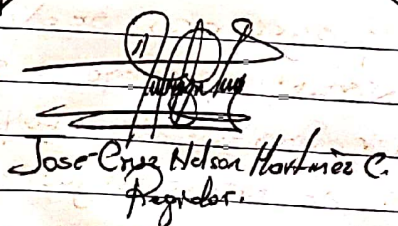 Jose Cruz Nelson Martinèz C.
Regidor.